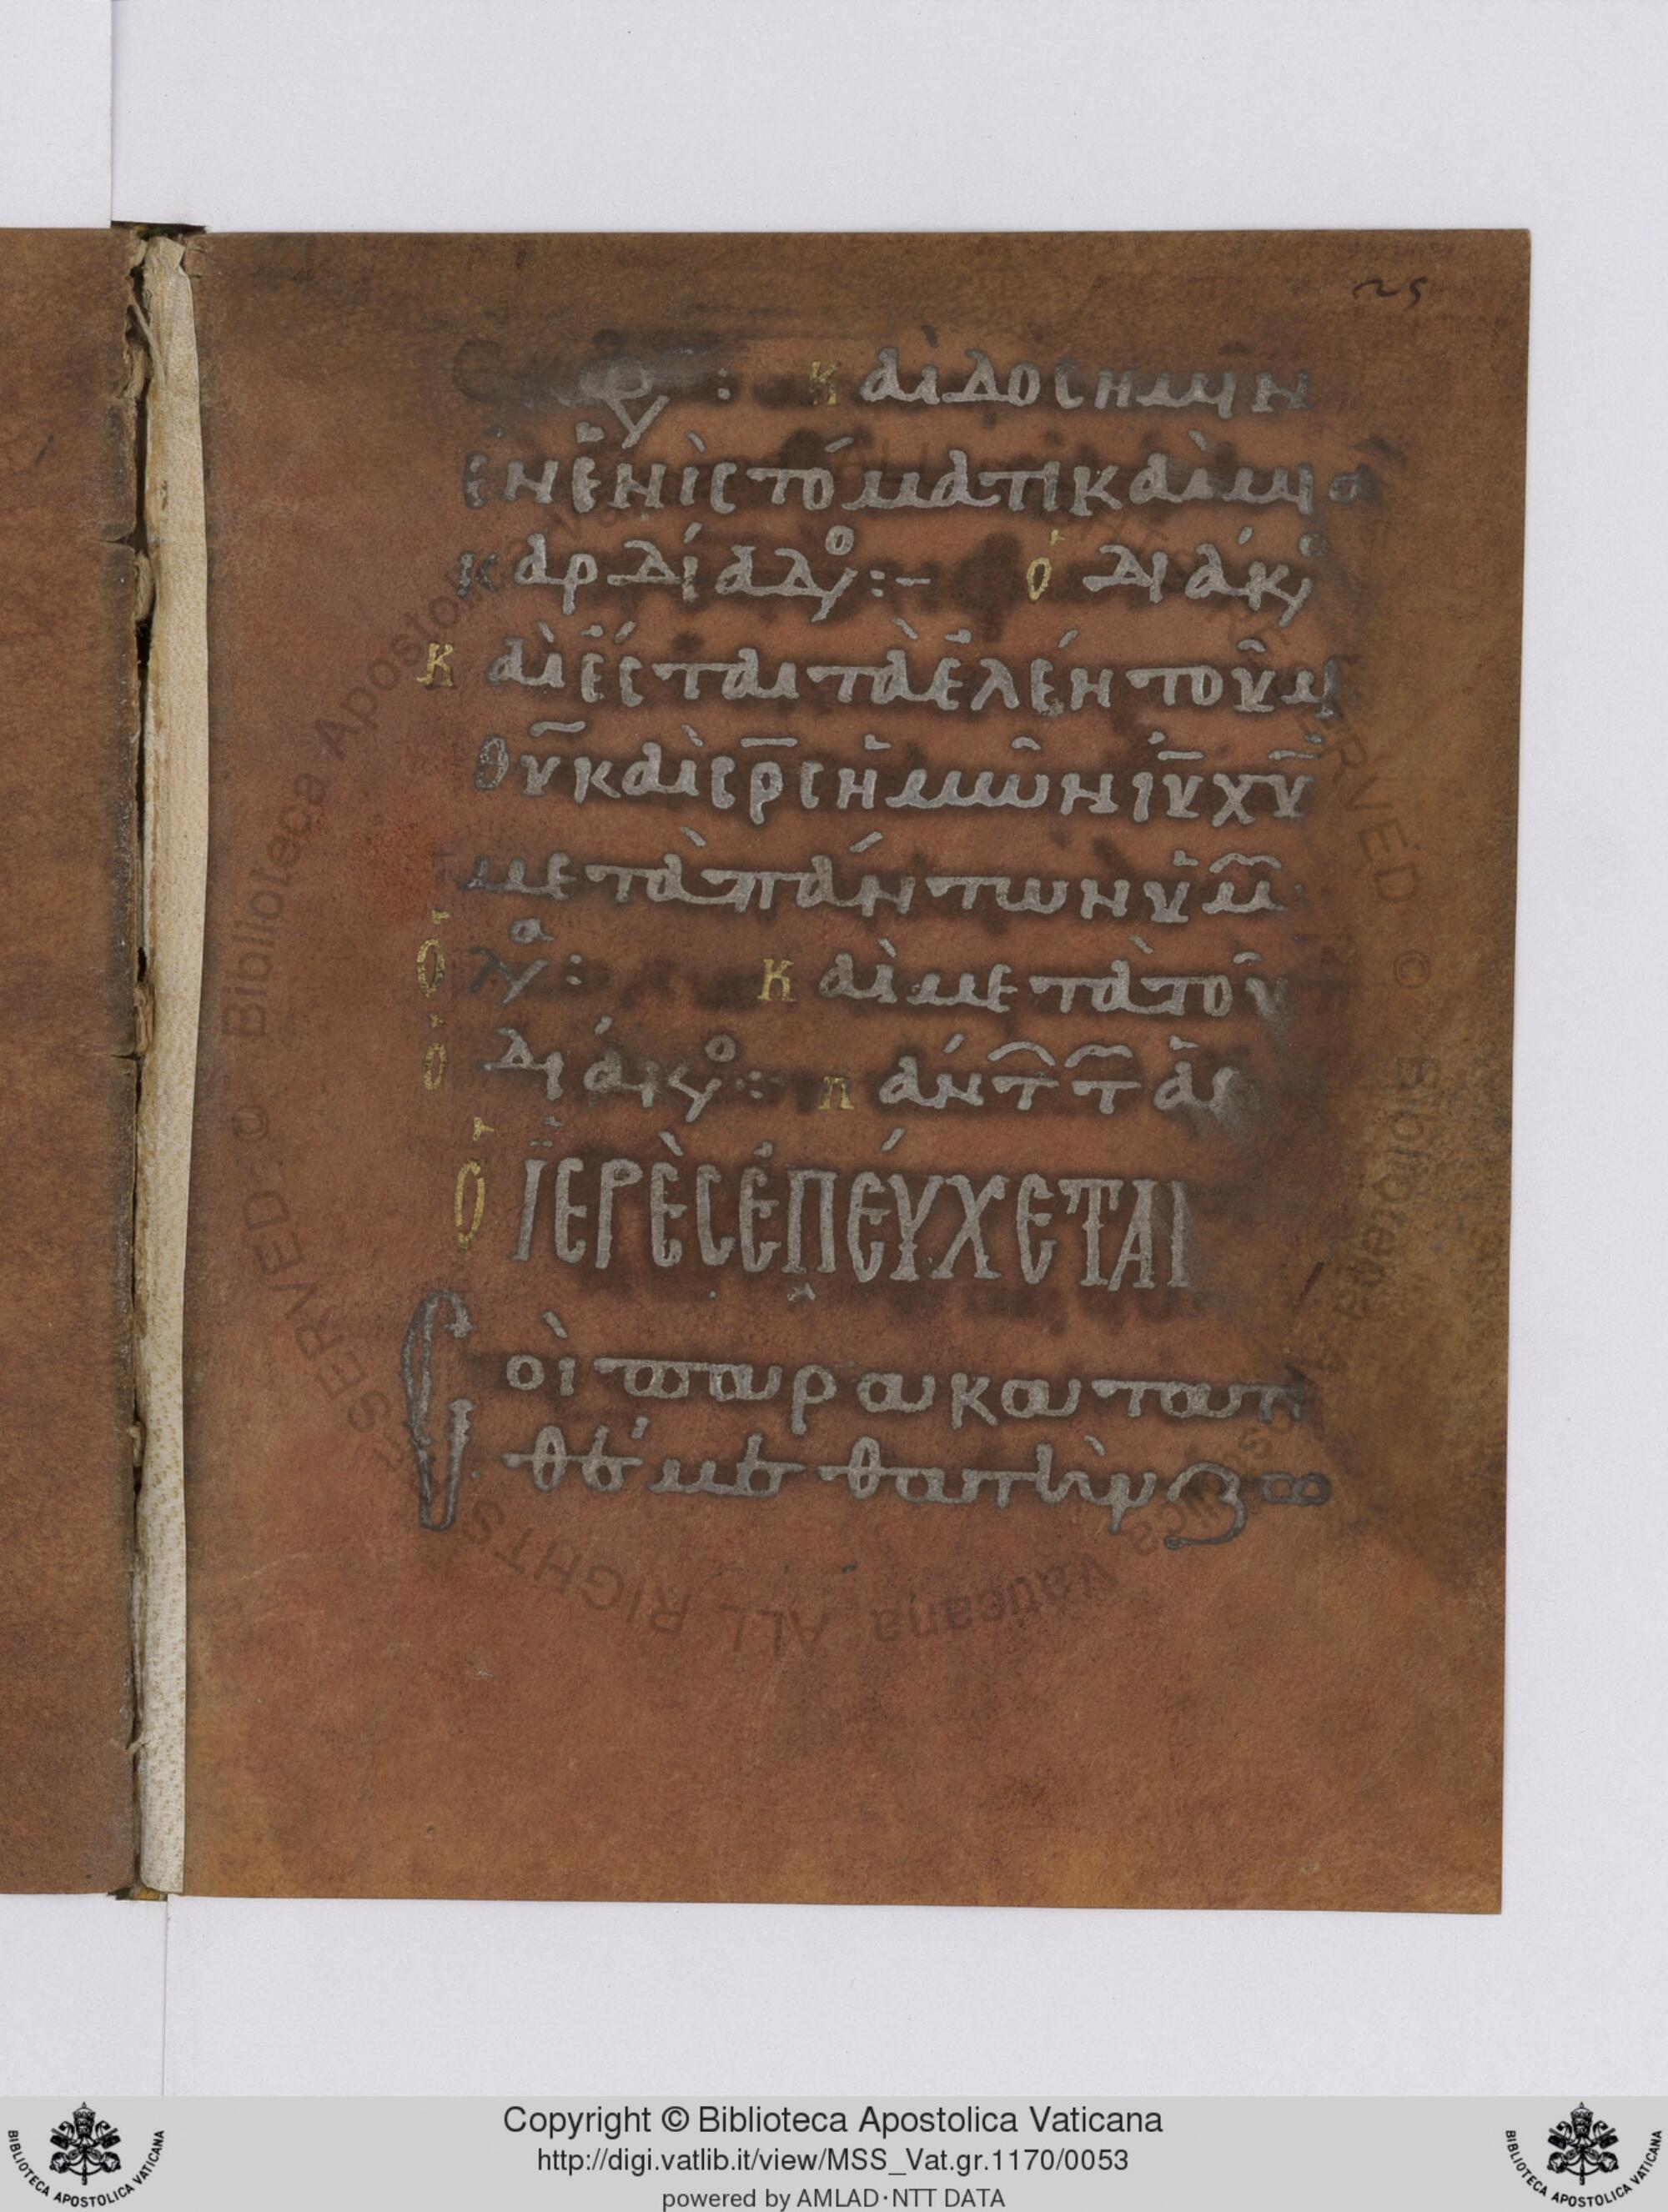 25
: καὶ δὸς ἡμῖν
ἐν ἑνὶ στόματι καὶ μιᾶ
καρδία δο: – ὁ διάκο
καὶ ἔσται τὰ ἐλέη τοῦ μ
θυ καὶ σρς ἡμῶν ιυ χυ
μετὰ πάντων ὑμ
ὁ λα: καὶ μετὰ τοῦ
ὁ διάκο: πάντ τ ἁγ
ὁ ἹΕΡΕῈΣ ἘΠΕΎΧΕΤΑΙ
Σοὶ παρακατατι
θέμεθα τὴν ζω
Copyright © Biblioteca Apostolica Vaticana
http://digi.vatlib.it/view/MSS_Vat.gr.1170/0053
powered by AMLAD·NTT DATA
BIBLIOTECA APOSTOLICA VATICANA
BIBLIOTECA APOSTOLICA VATICANA